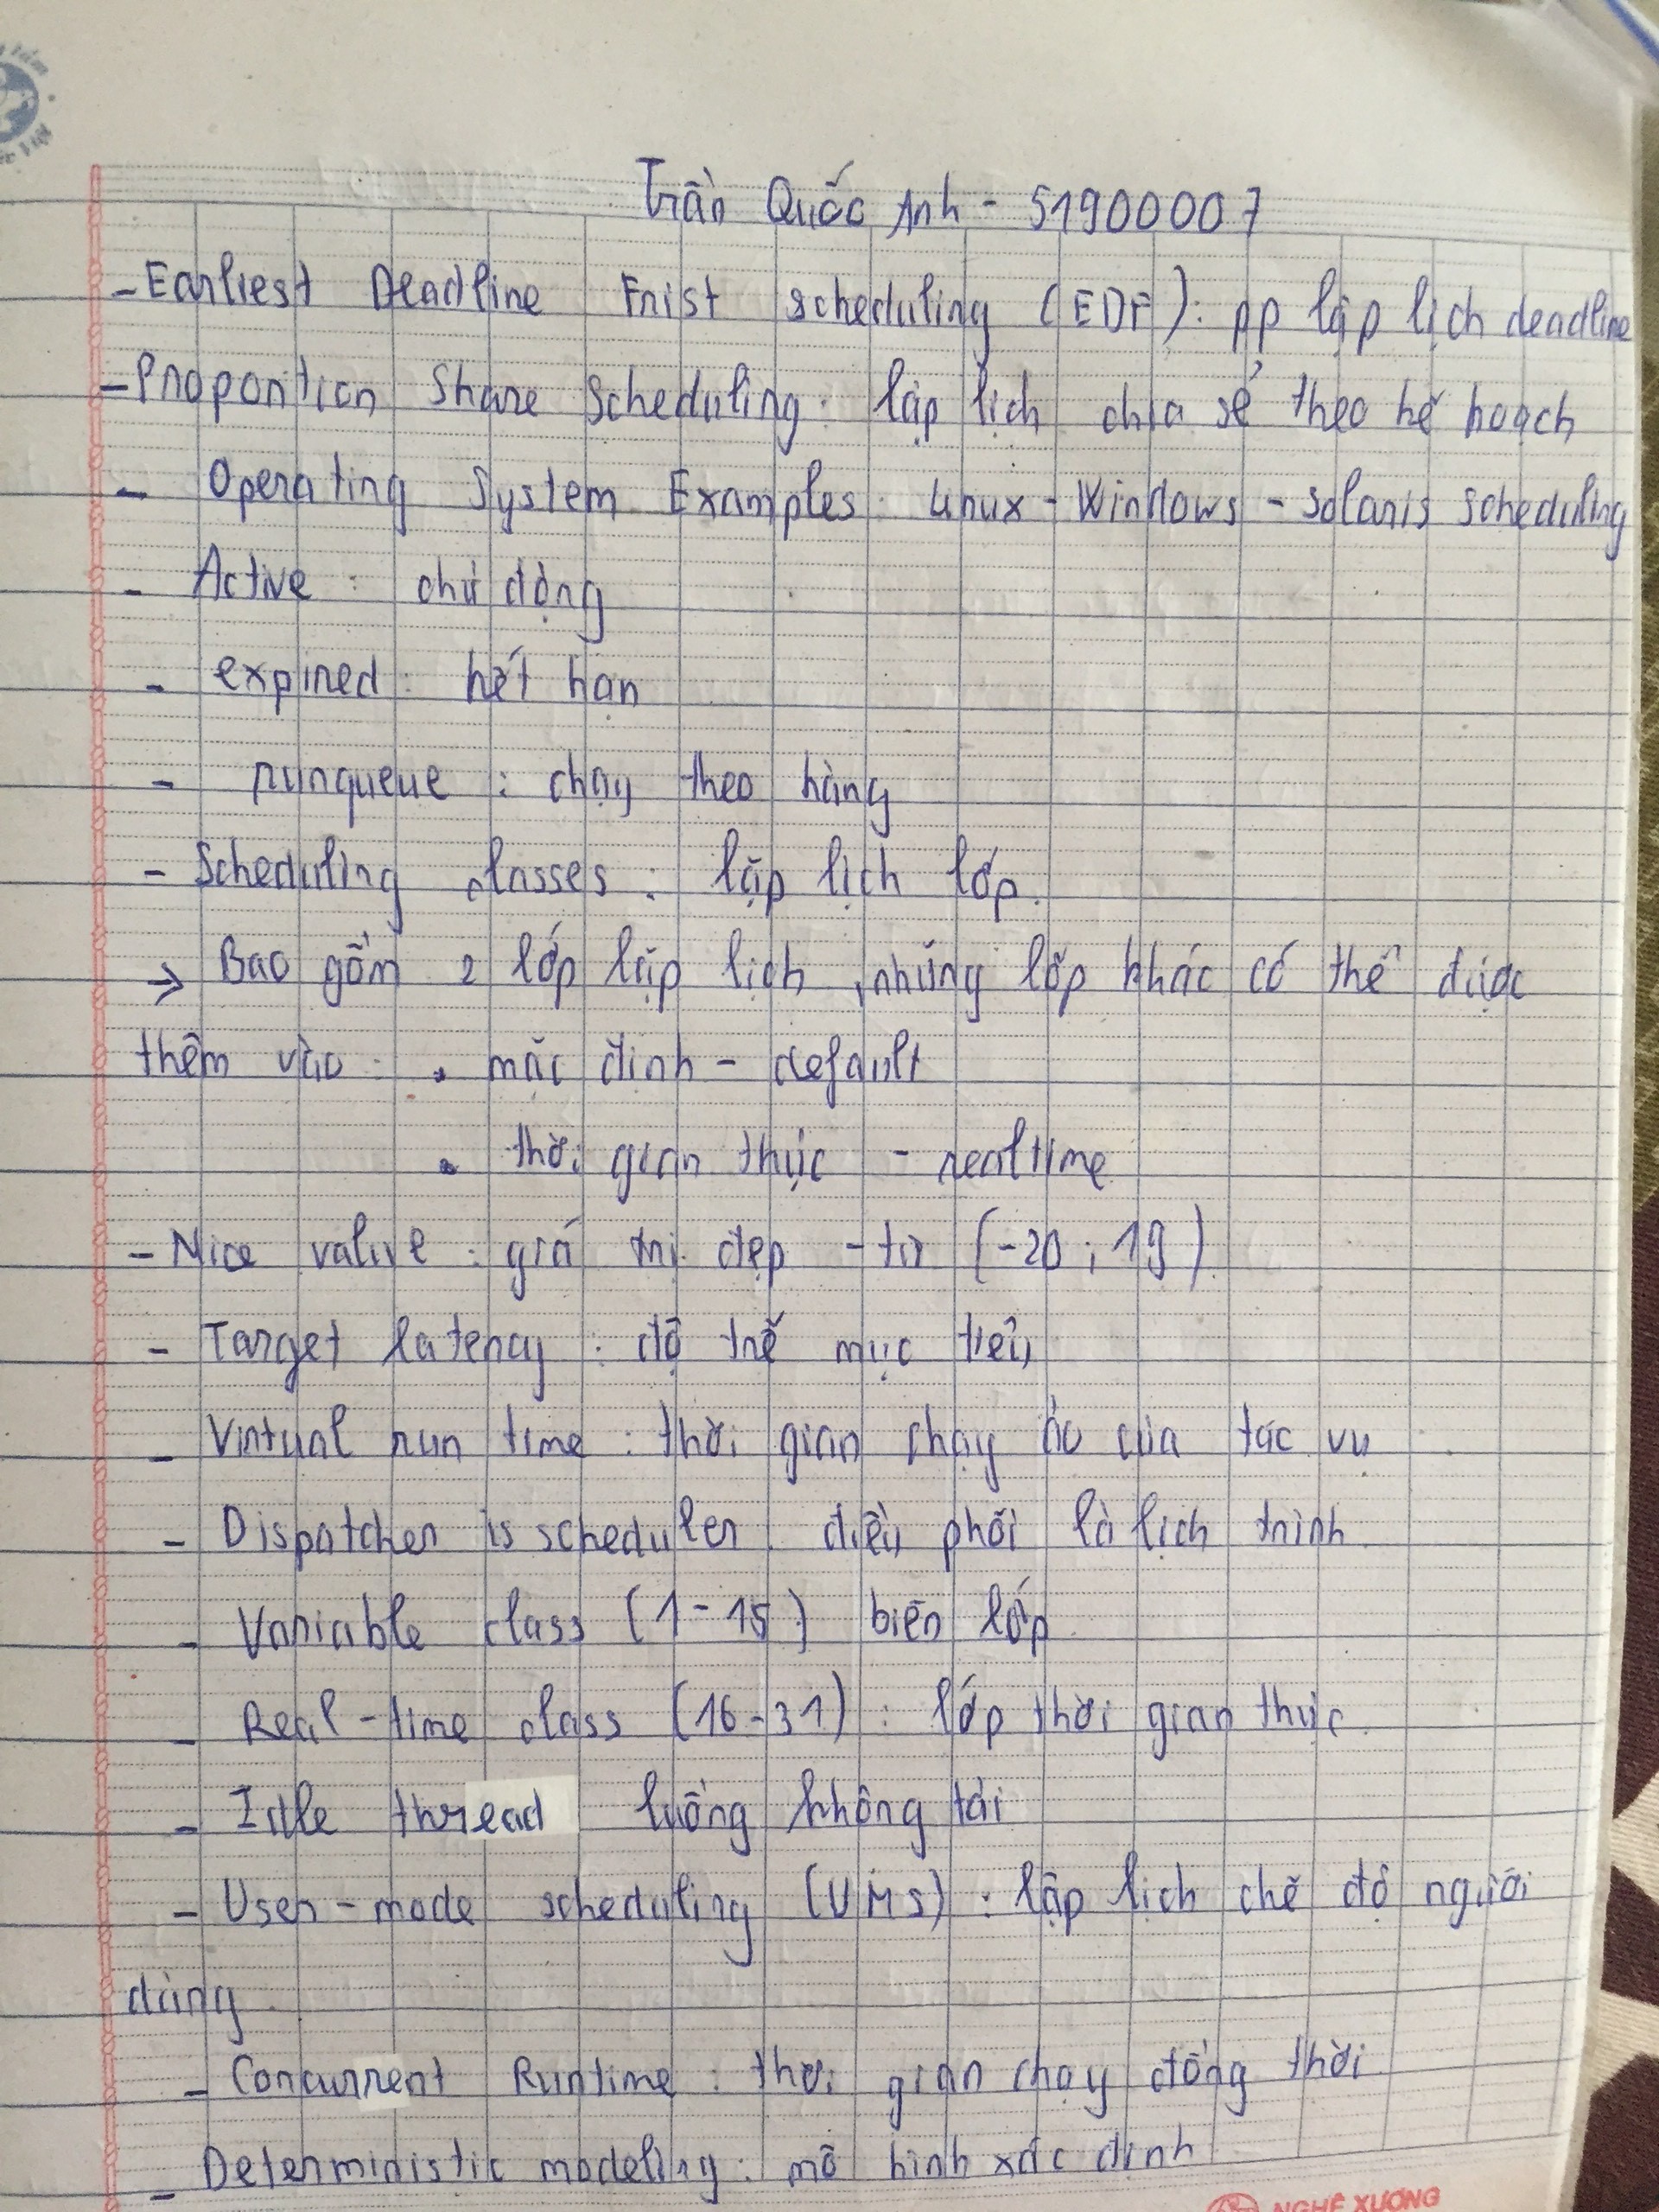 Trần Quốc Anh - 51900007
- Earliest Deadline Frist scheduling (EDF): pp lập lịch deadline
- Proportion Share Scheduling: lập lịch chia sẻ theo kế hoạch
- Operating System Examples: Linux - Windows - Solaris scheduling
- Active: chủ động
- expired: hết hạn
- runqueue: chạy theo hàng
- Scheduling classes: lập lịch lớp.
→ Bao gồm 2 lớp lập lịch, những lớp khác có thể được
thêm vào: • mặc định - default
• thời gian thực - realtime
- Nice value: giá trị đẹp - từ (-20; 19).
- Target latency: độ trễ mục tiêu
- Virtual run time: thời gian chạy ảo của tác vụ
- Dispatcher is scheduler: điều phối là lịch trình
- Variable class (1-15) biến lớp
- Real-time class (16-31): lớp thời gian thực.
- Idle thread luồng không tải
- User-mode scheduling (UMS): lập lịch chế độ người
dùng
- Concurrent Runtime: thời gian chạy đồng thời
- Deterministic modeling: mô hình xác định
NGHỆ XƯƠNG